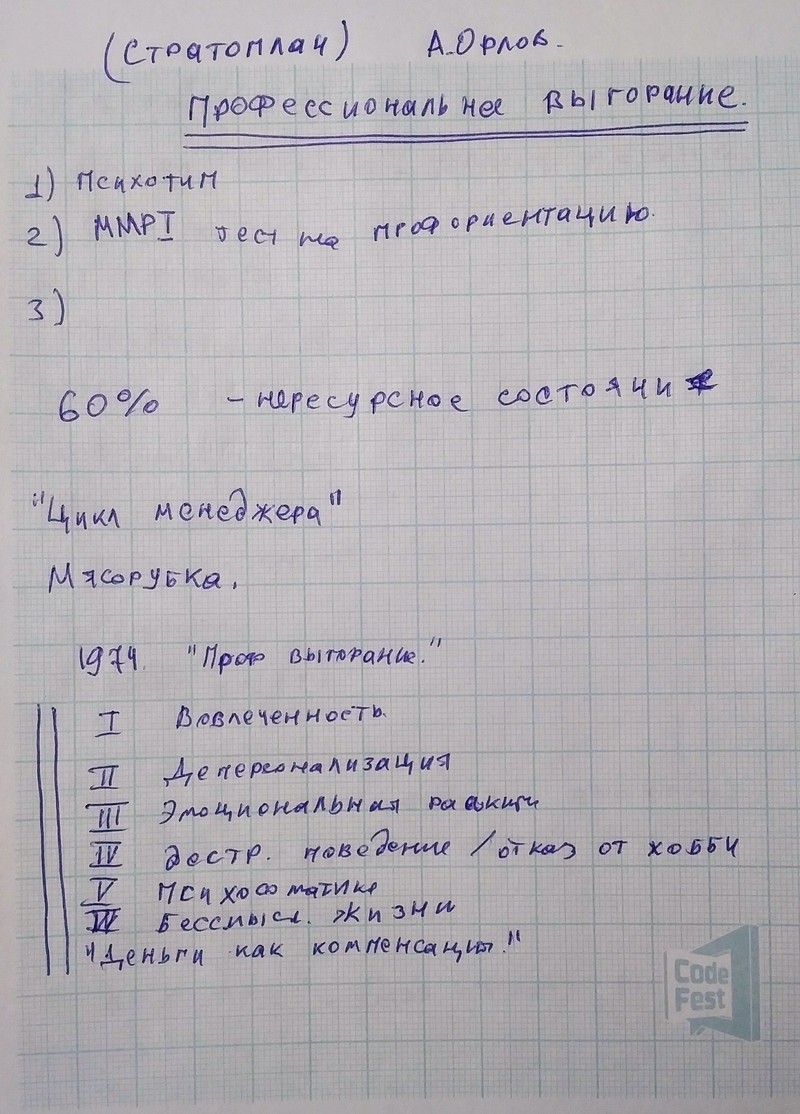 (Стратоплан) А.Орлов.
Профессиональное выгорание.
1) Психотип
2) MMPI тест на профориентацию.
3)
60% - нересурсное состояни
"Цикл менеджера"
Мясорубка.
1974. "Проф выгорание."
I Вовлеченность.
II Деперсонализация
III Эмоциональная
IV дестр. поведение / отказ от хобби
V Психосоматика
Бессмысл. жизни
"Деньги как компенсация."
Code
Fest